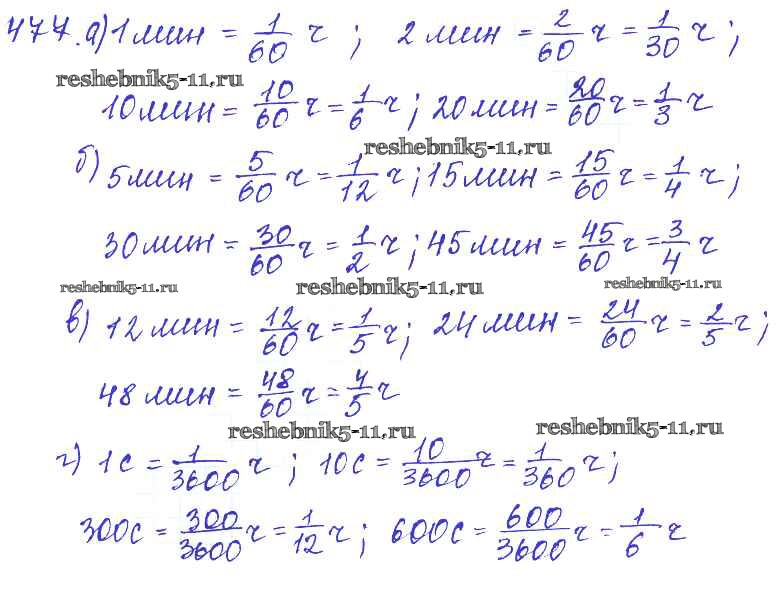 477. а) 1 мин = 1/60 ч ; 2 мин = 2/60 ч = 1/30 ч ;
reshebnik5-11.ru
10 мин = 10/60 ч = 1/6 ч ; 20 мин = 20/60 ч = 1/3 ч
reshebnik5-11.ru
б) 5 мин = 5/60 ч = 1/12 ч ; 15 мин = 15/60 ч = 1/4 ч ;
30 мин = 30/60 ч = 1/2 ч ; 45 мин = 45/60 ч = 3/4 ч
reshebnik5-11.ru reshebnik5-11.ru reshebnik5-11.ru
в) 12 мин = 12/60 ч = 1/5 ч ; 24 мин = 24/60 ч = 2/5 ч ;
48 мин = 48/60 ч = 4/5 ч
reshebnik5-11.ru reshebnik5-11.ru
г) 1 с = 1/3600 ч ; 10 с = 10/3600 ч = 1/360 ч ;
300 с = 300/3600 ч = 1/12 ч ; 600 с = 600/3600 ч = 1/6 ч